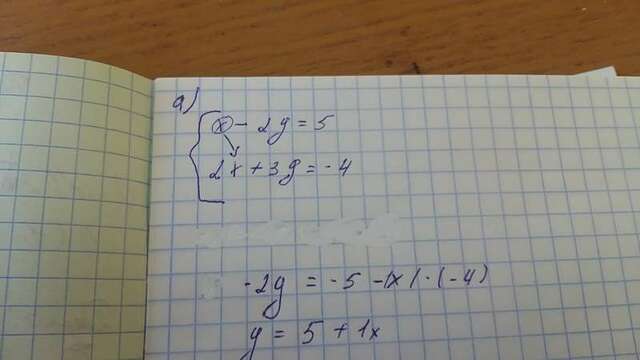 a)
x - 2y = 5
2x + 3y = -4
-2y = -5 - 1x | · (-4)
y = 5 + 1x